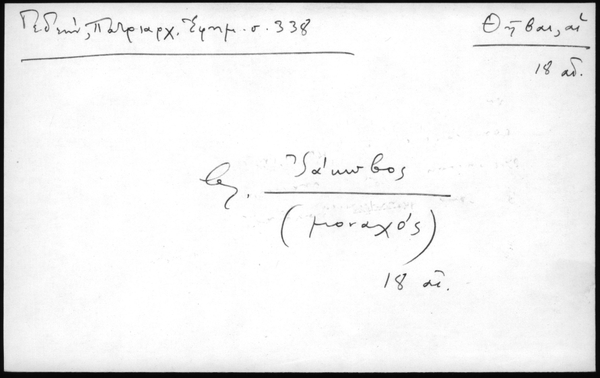 Γεδεών, Πατριαρχ. Ἐφημ. σ. 338
Θῆβαι, αἱ
18 αἰ.
Ἰάκωβος
(μοναχός)
18 αἰ.